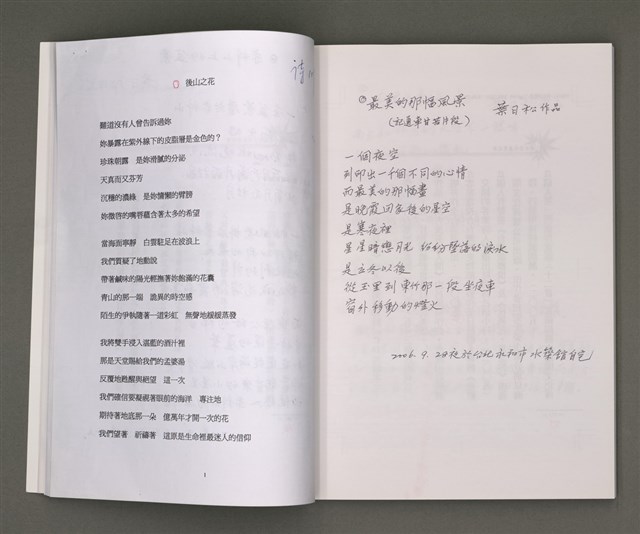 後山之花
難道沒有人曾告訴過妳
妳暴露在紫外線下的皮脂層是金色的？
珍珠朝露　是妳滑膩的分泌
天真而又芬芳
沉穩的濃綠　是妳慵懶的臂膀
妳微啓的嘴唇蘊含著太多的希望
當海面寧靜　白雲駐足在波浪上
我們質疑了地動說
帶著鹹味的陽光輕撫著妳飽滿的花囊
青山的那一端　詭異的時空感
陌生的爭執隨著一道彩虹　無聲地緩緩蒸發
我將雙手浸入湛藍的酒汁裡
那是天堂賜給我們的孟婆湯
反覆地甦醒與絕望　這一次
我們確信要凝視著眼前的海洋　專注地
期待著地底那一朵　億萬年才開一次的花
我們望著　祈禱著　這原是生命裡最迷人的信仰
1
詩
最美的那幅風景
葉日松作品
一個夜空
列印出一千個不同的心情
而最美的那幅畫
是晚霞回家後的星空
是寒夜裡
星星暗戀月光
是立冬以後
從玉里到東竹那一段坐夜車
窗外移動的燈火
2006.9.28夜於台北永和市